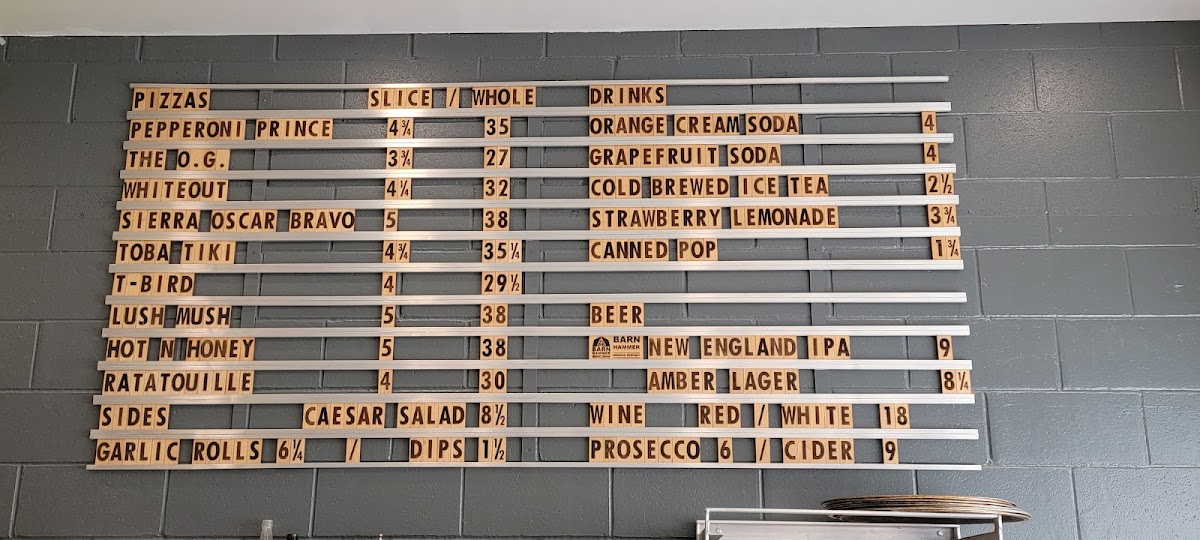 PIZZAS SLICE / WHOLE
PEPPERONI PRINCE 4¾ 35
THE O.G. 3¾ 27
WHITEOUT 4¼ 32
SIERRA OSCAR BRAVO 5 38
TOBA TIKI 4¾ 35¼
T-BIRD 4 29½
LUSH MUSH 5 38
HOT N HONEY 5 38
RATATOUILLE 4 30
SIDES CAESAR SALAD 8½
GARLIC ROLLS 6¼ / DIPS 1½
DRINKS
ORANGE CREAM SODA 4
GRAPEFRUIT SODA 4
COLD BREWED ICE TEA 2½
STRAWBERRY LEMONADE 3¾
CANNED POP 1¾
BEER
BARN HAMMER BARN HAMMER NEW ENGLAND IPA 9
AMBER LAGER 8¼
WINE RED / WHITE 18
PROSECCO 6 / CIDER 9